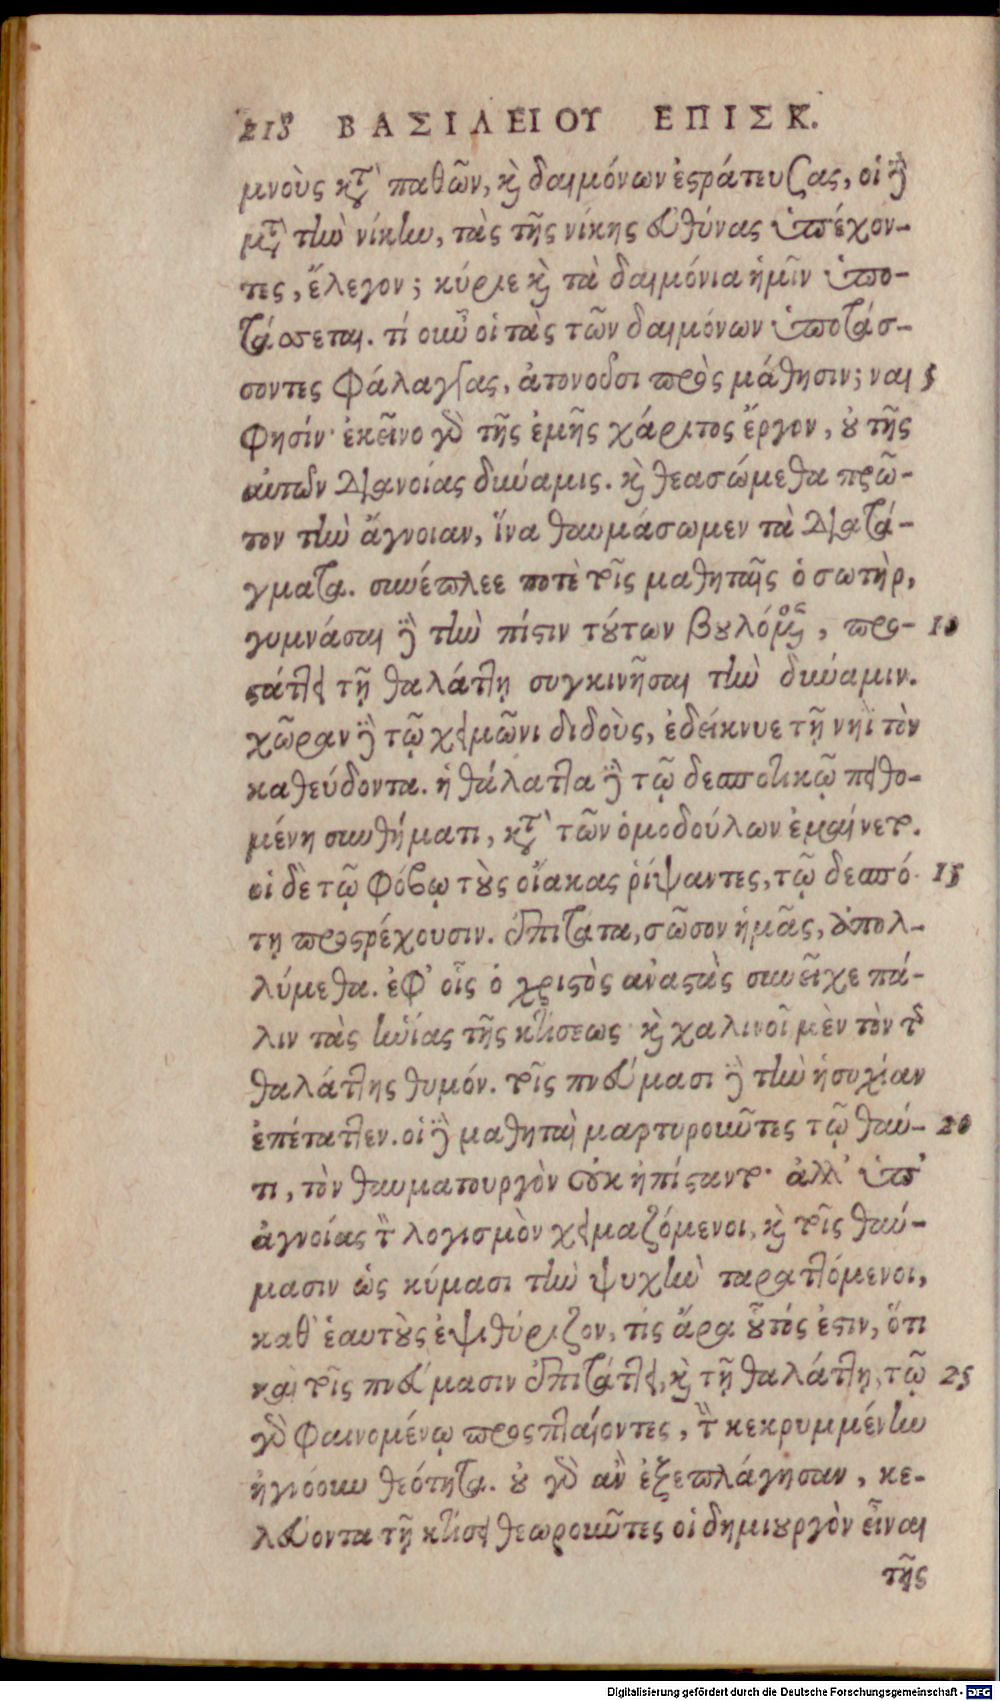 218 ΒΑΣΙΛΕΙΟΥ ΕΠΙΣΚ.
μνοὺς κατὰ παθῶν, καὶ δαιμόνων ἐστράτευσας, οἱ δὲ
μετὰ τὴν νίκην, τὰς τῆς νίκης εὐθύνας ὑπέχον-
τες, ἔλεγον; κύριε καὶ τὰ δαιμόνια ἡμῖν ὑπο-
τάσσεται. τί οὖν οἱ τὰς τῶν δαιμόνων ὑποτάσ-
σοντες φάλαγγας, ἀτονοῦσι πρὸς μάθησιν; ναι 5
φησίν· ἐκεῖνο γὰρ τῆς ἐμῆς χάριτος ἔργον, οὐ τῆς
αὐτῶν διανοίας δύναμις. καὶ θεασώμεθα πρῶ-
τον τὴν ἄγνοιαν, ἵνα θαυμάσωμεν τὰ διατά-
γματα. συνέπλεε ποτὲ τοῖς μαθηταῖς ὁ σωτὴρ,
γυμνάσαι δὲ τὴν πίστιν τούτων βουλόμενος, προσ- 10
τάττει τῇ θαλάττῃ συγκινῆσαι τὴν δύναμιν.
χῶραν δὲ τῷ χειμῶνι διδοὺς, ἐδείκνυε τῇ νηῒ τὸν
καθεύδοντα. ἡ θάλαττα δὲ τῷ δεσποτικῷ πειθο-
μένη συνθήματι, κατὰ τῶν ὁμοδούλων ἐμαίνετο.
οἱ δὲ τῷ φόβῳ τοὺς οἴακας ῥίψαντες, τῷ δεσπό- 15
τῃ προστρέχουσιν. ἐπιστάτα, σῶσον ἡμᾶς, ἀπολ-
λύμεθα. ἐφ' οἷς ὁ χριστὸς ἀναστὰς συνεῖχε πά-
λιν τὰς ἡνίας τῆς κτίσεως καὶ χαλινοῖ μὲν τὸν τῆς
θαλάττης θυμόν. τοῖς πνεύμασι δὲ τὴν ἡσυχίαν
ἐπέταττεν. οἱ δὲ μαθηταὶ μαρτυροῦντες τῷ θαύ- 20
τι, τὸν θαυματουργὸν οὐκ ἠπίσταντο· ἀλλ' ὑπ'
ἀγνοίας τὸν λογισμὸν χειμαζόμενοι, καὶ τοῖς θαύ-
μασιν ὡς κύμασι τὴν ψυχὴν ταραττόμενοι,
καθ' ἑαυτοὺς ἐψιθύριζον, τίς ἄρα οὗτός ἐστιν, ὅτι
καὶ τοῖς πνεύμασιν ἐπιτάττει, καὶ τῇ θαλάττῃ, τῷ 25
γὰρ φαινομένῳ προσπταίοντες, τὴν κεκρυμμένην
ἠγνόουν θεότητα. οὐ γὰρ ἂν ἐξεπλάγησαν, κε-
λεύοντα τῇ κτίσει θεωροῦντες οἱ δημιουργὸν εἶναι
τῆς
Digitalisierung gefördert durch die Deutsche Forschungsgemeinschaft - DFG